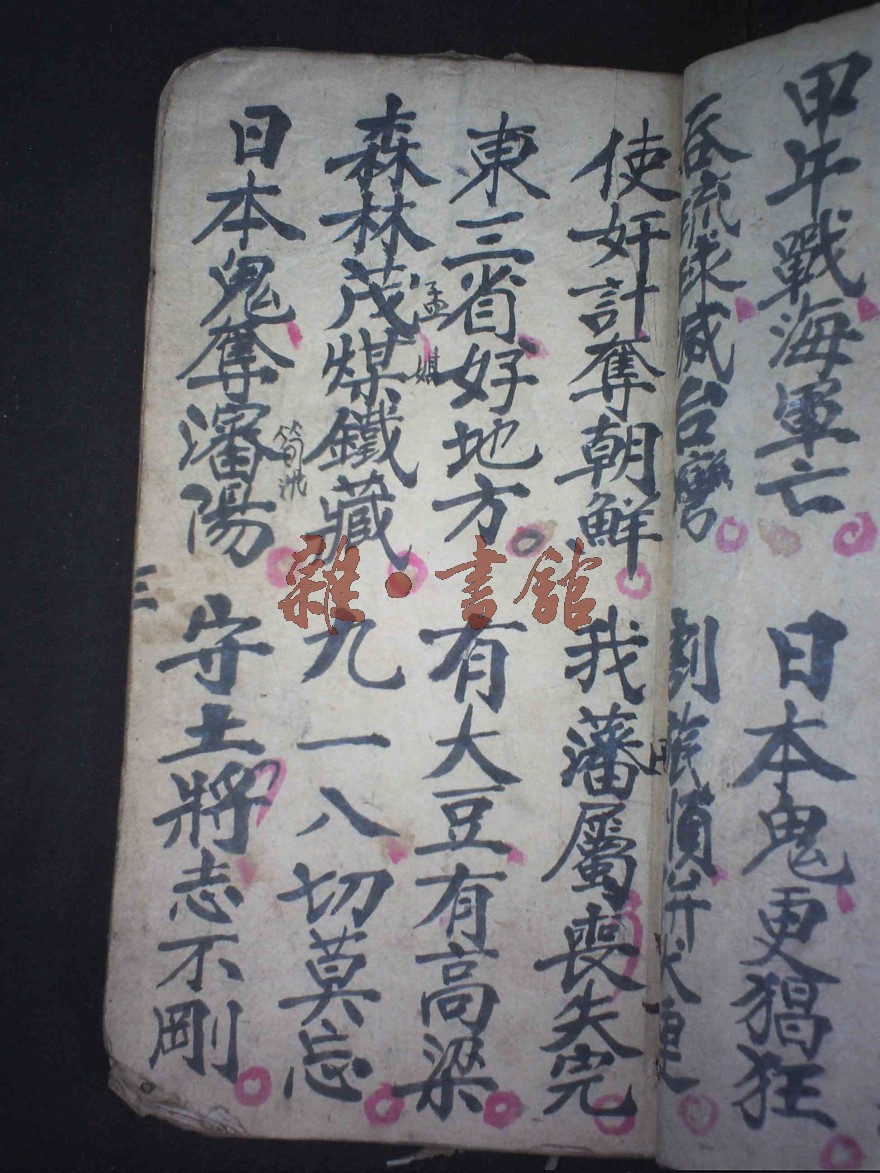 甲午戰海軍亡 日本鬼更猖狂
吞琉球滅台灣 割旅順併大連
使奸計奪朝鮮 我藩屬喪失完
東三省好地方 有大豆有高梁
森林茂煤鐵藏 九一八切莫忘
孟
媒
日本鬼奪瀋陽 守土將志不剛
三
雜·書館